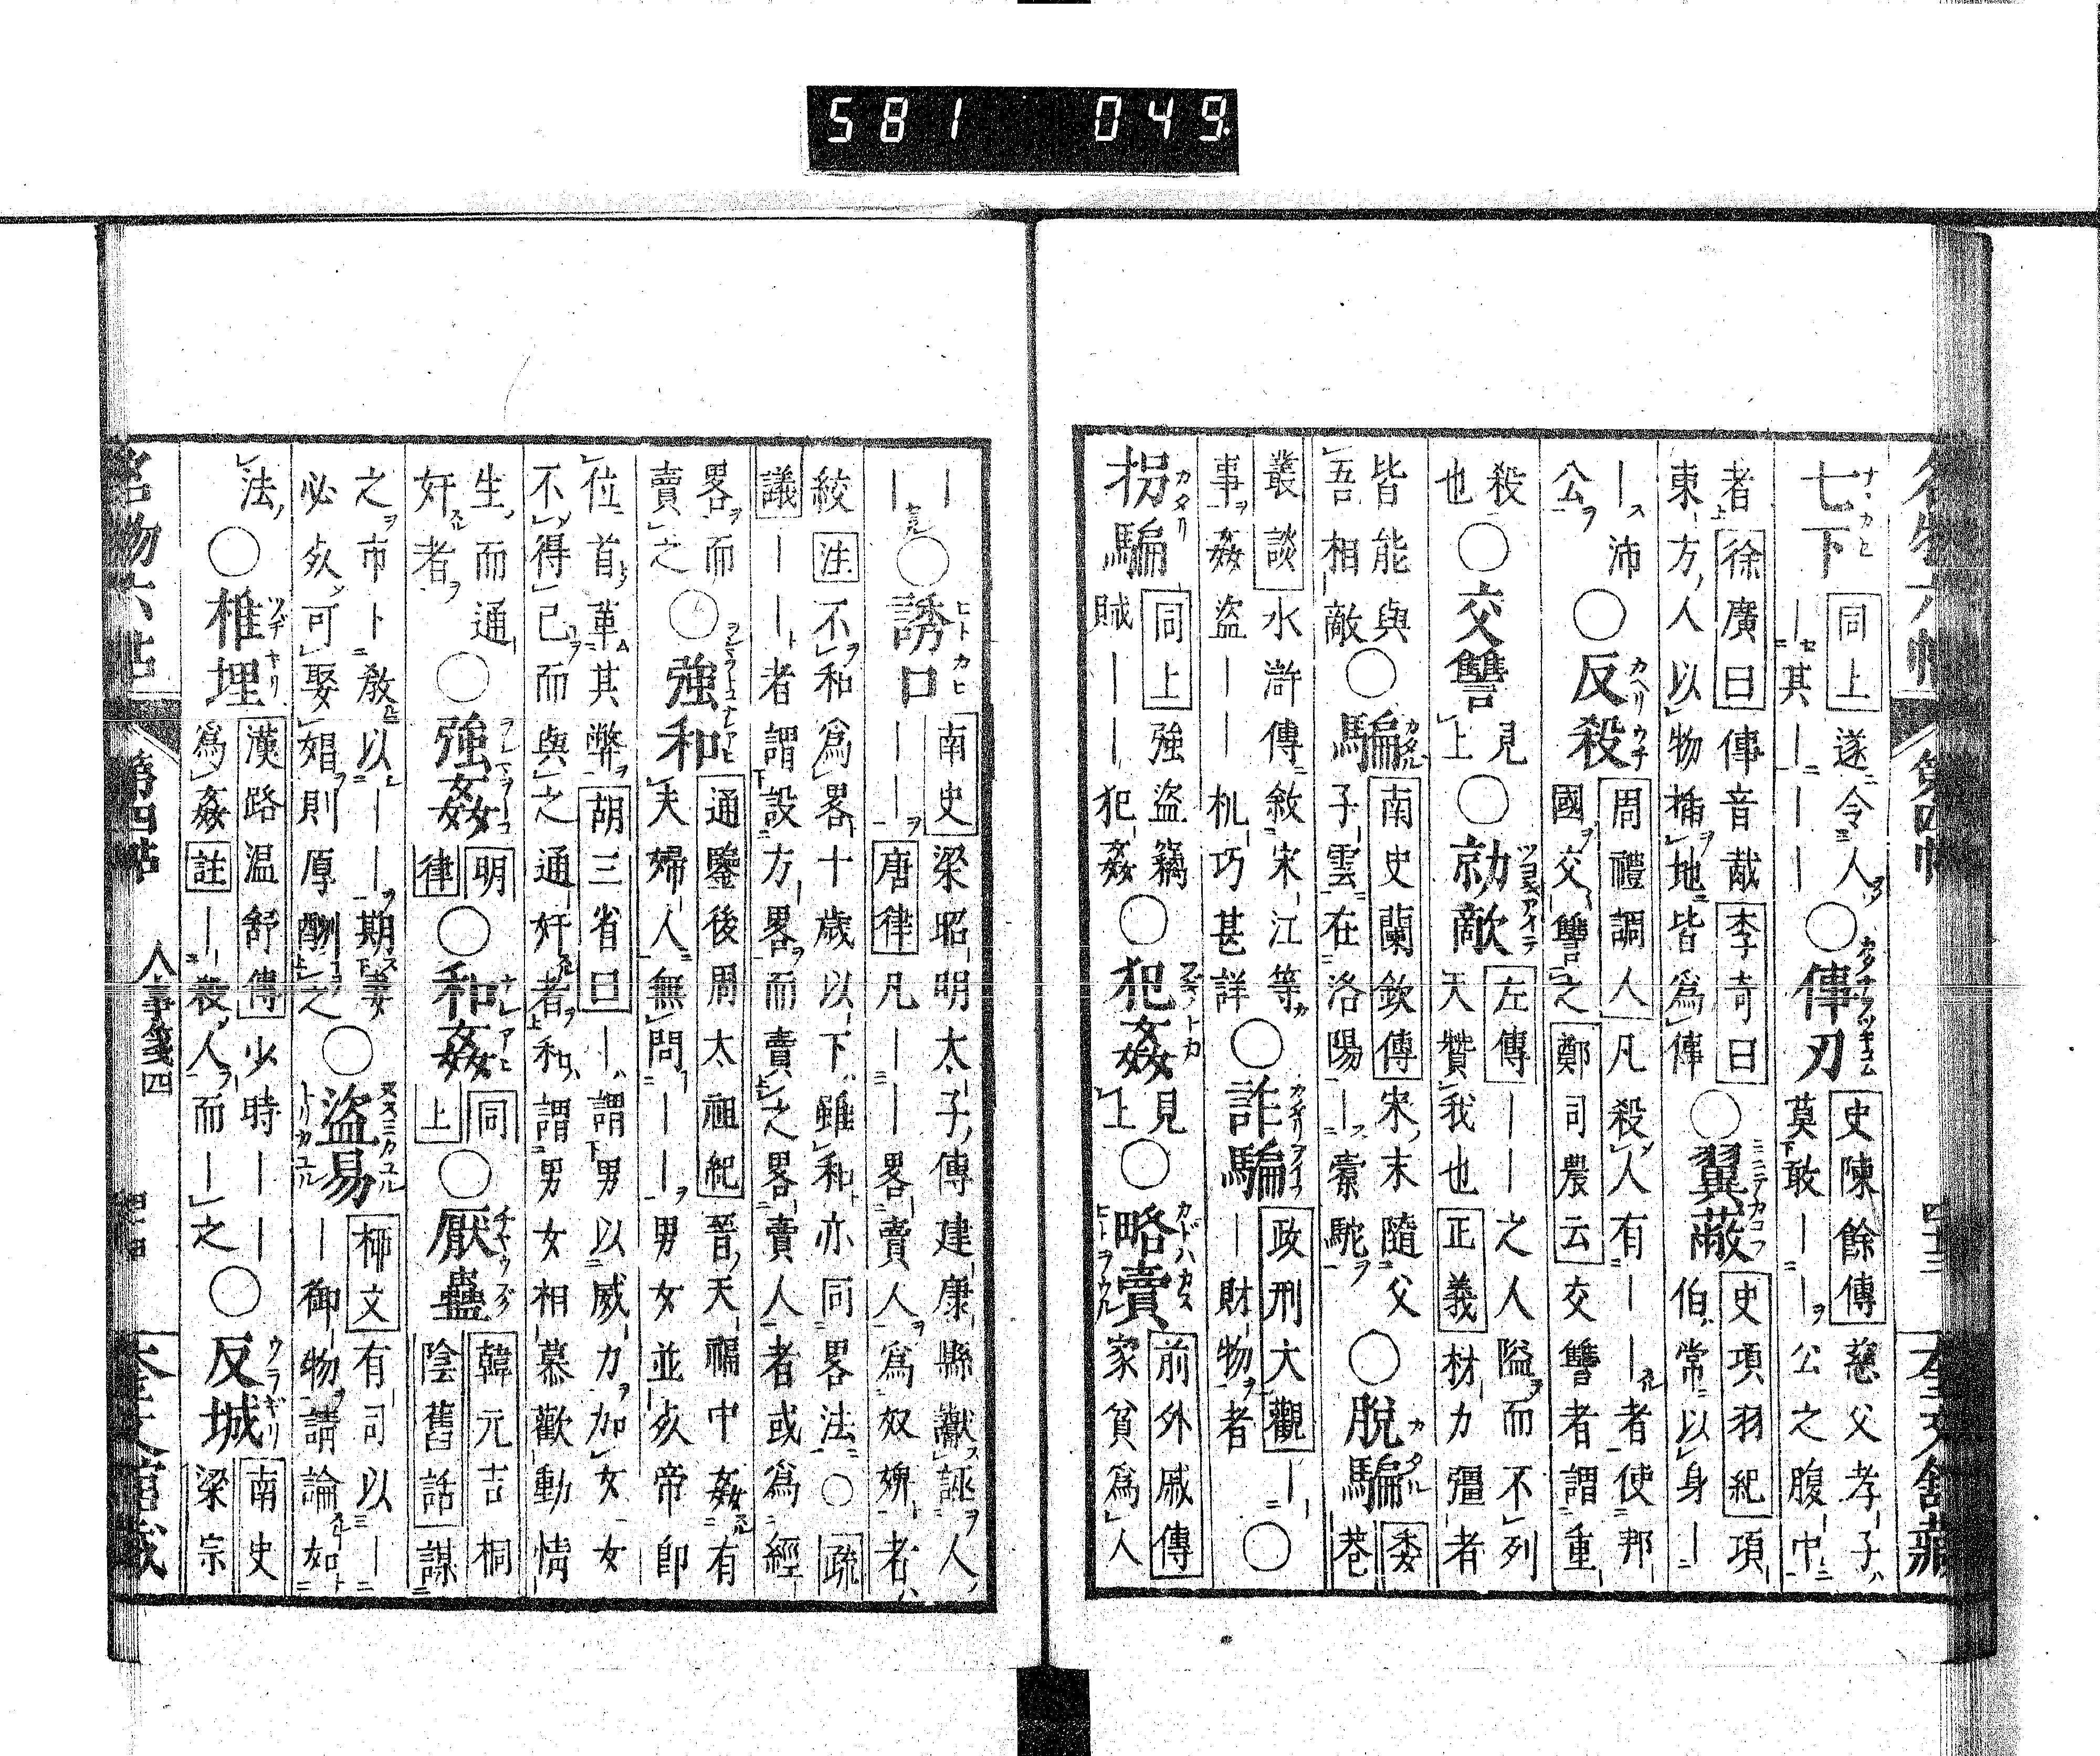 581 049
七下 同上 遂令人
｜其｜｜｜
○傳刃 史陳餘傳 慈父孝子
莫敢｜｜公之腹中
者 徐廣曰 傳音胾 李奇曰
東方人以物插地皆爲傳
○翼蔽 史項羽紀 項
伯常以身｜
｜沛
公○反殺 周禮調人 凡殺人有｜｜者使邦
國交讐之 鄭司農云 交讐者謂重
殺
也○交讐 見上○勍敵 左傳 ｜｜之人隘而不列
天贊我也 正義 材力彊者
皆能與
吾相敵○騙 南史蘭欽傳 宋末隨父
子雲在洛陽｜橐駝○脫騙 委巷
叢談 水滸傳敘宋江等
事姦盜｜｜机巧甚詳○詐騙 政刑大觀 ｜
｜財物者○
拐騙 同上 強盜竊
賊｜｜犯姦○犯姦 見上○略賣 前外戚傳
家貧爲人
｜
｜○誘口 南史 梁昭明太子傳建康縣讞誣人
｜｜ 唐律 凡｜｜畧賣人爲奴婢者
絞 注 不和爲畧十歲以下雖和亦同畧法○ 疏
議 ｜｜者謂設方畧而賣之畧賣人者或爲經
畧而
賣之○強和 通鑒後周太祖紀 晉天福中姦有
夫婦人無問｜｜男女並死帝卽
位首革其弊 胡三省曰 ｜謂男以威力加女女
不得已而與之通奸者和謂男女相慕歡動情
生而通
奸者○強姦 明律 ○和姦 同上 ○厭蠱 韓元吉桐
陰舊話 謀
之市卜敎以｜｜期妻
必死可娶娼則厚酬之○盜易 柳文 有司以｜
｜御物請論如
法○椎埋 漢路温舒傳 少時｜｜
爲姦 註 ｜殺人而｜之○反城 南史
梁宗
名物六帖 第四帖 人事箋四